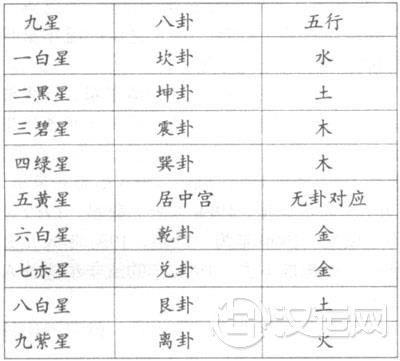 九星 八卦 五行
一白星 坎卦 水
二黑星 坤卦 土
三碧星 震卦 木
四绿星 巽卦 木
五黄星 居中宫 无卦对应
六白星 乾卦 金
七赤星 兑卦 金
八白星 艮卦 土
九紫星 离卦 火
汉程网